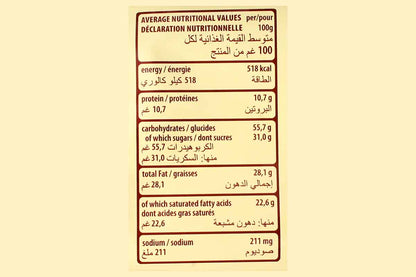 AVERAGE NUTRITIONAL VALUES per/pour
DÉCLARATION NUTRITIONNELLE 100g
متوسط القيمة الغذائية لكل
100 غم من المنتج
energy/énergie 518 kcal
الطاقة 518 كيلو كالوري
protein/protéines 10,7 g
البروتين 10,7 غم
carbohydrates/glucides 55,7 g
of which sugars/dont sucres 31,0 g
الكربوهيدرات 55,7 غم
منها: السكريات 31,0 غم
total Fat/graisses 28,1 g
إجمالي الدهون 28,1 غم
of which saturated fatty acids 22,6 g
dont acides gras saturés
منها: دهون مشبعة 22,6 غم
sodium/sodium 211 mg
صوديوم 211 ملغ